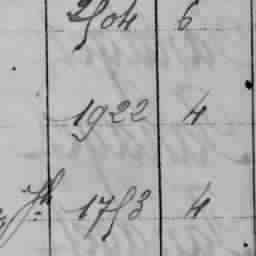 2504 6
1922 4
1753 4